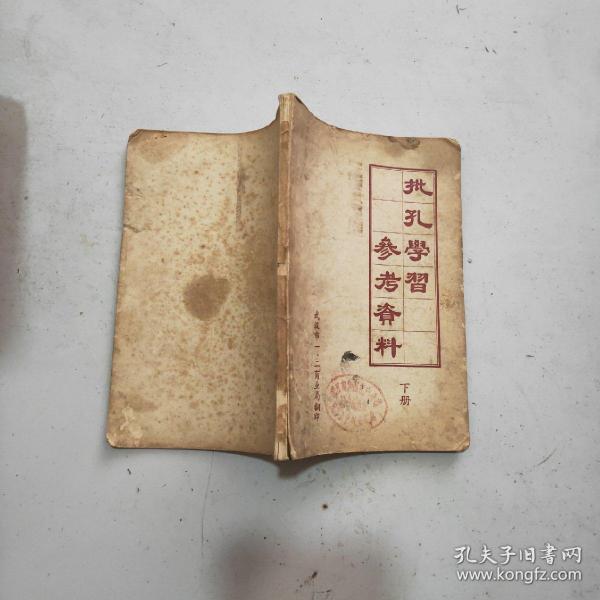 批孔學習
參考資料
下册
武汉市一·二商业局翻印
孔夫子旧書网
www.kongfz.com